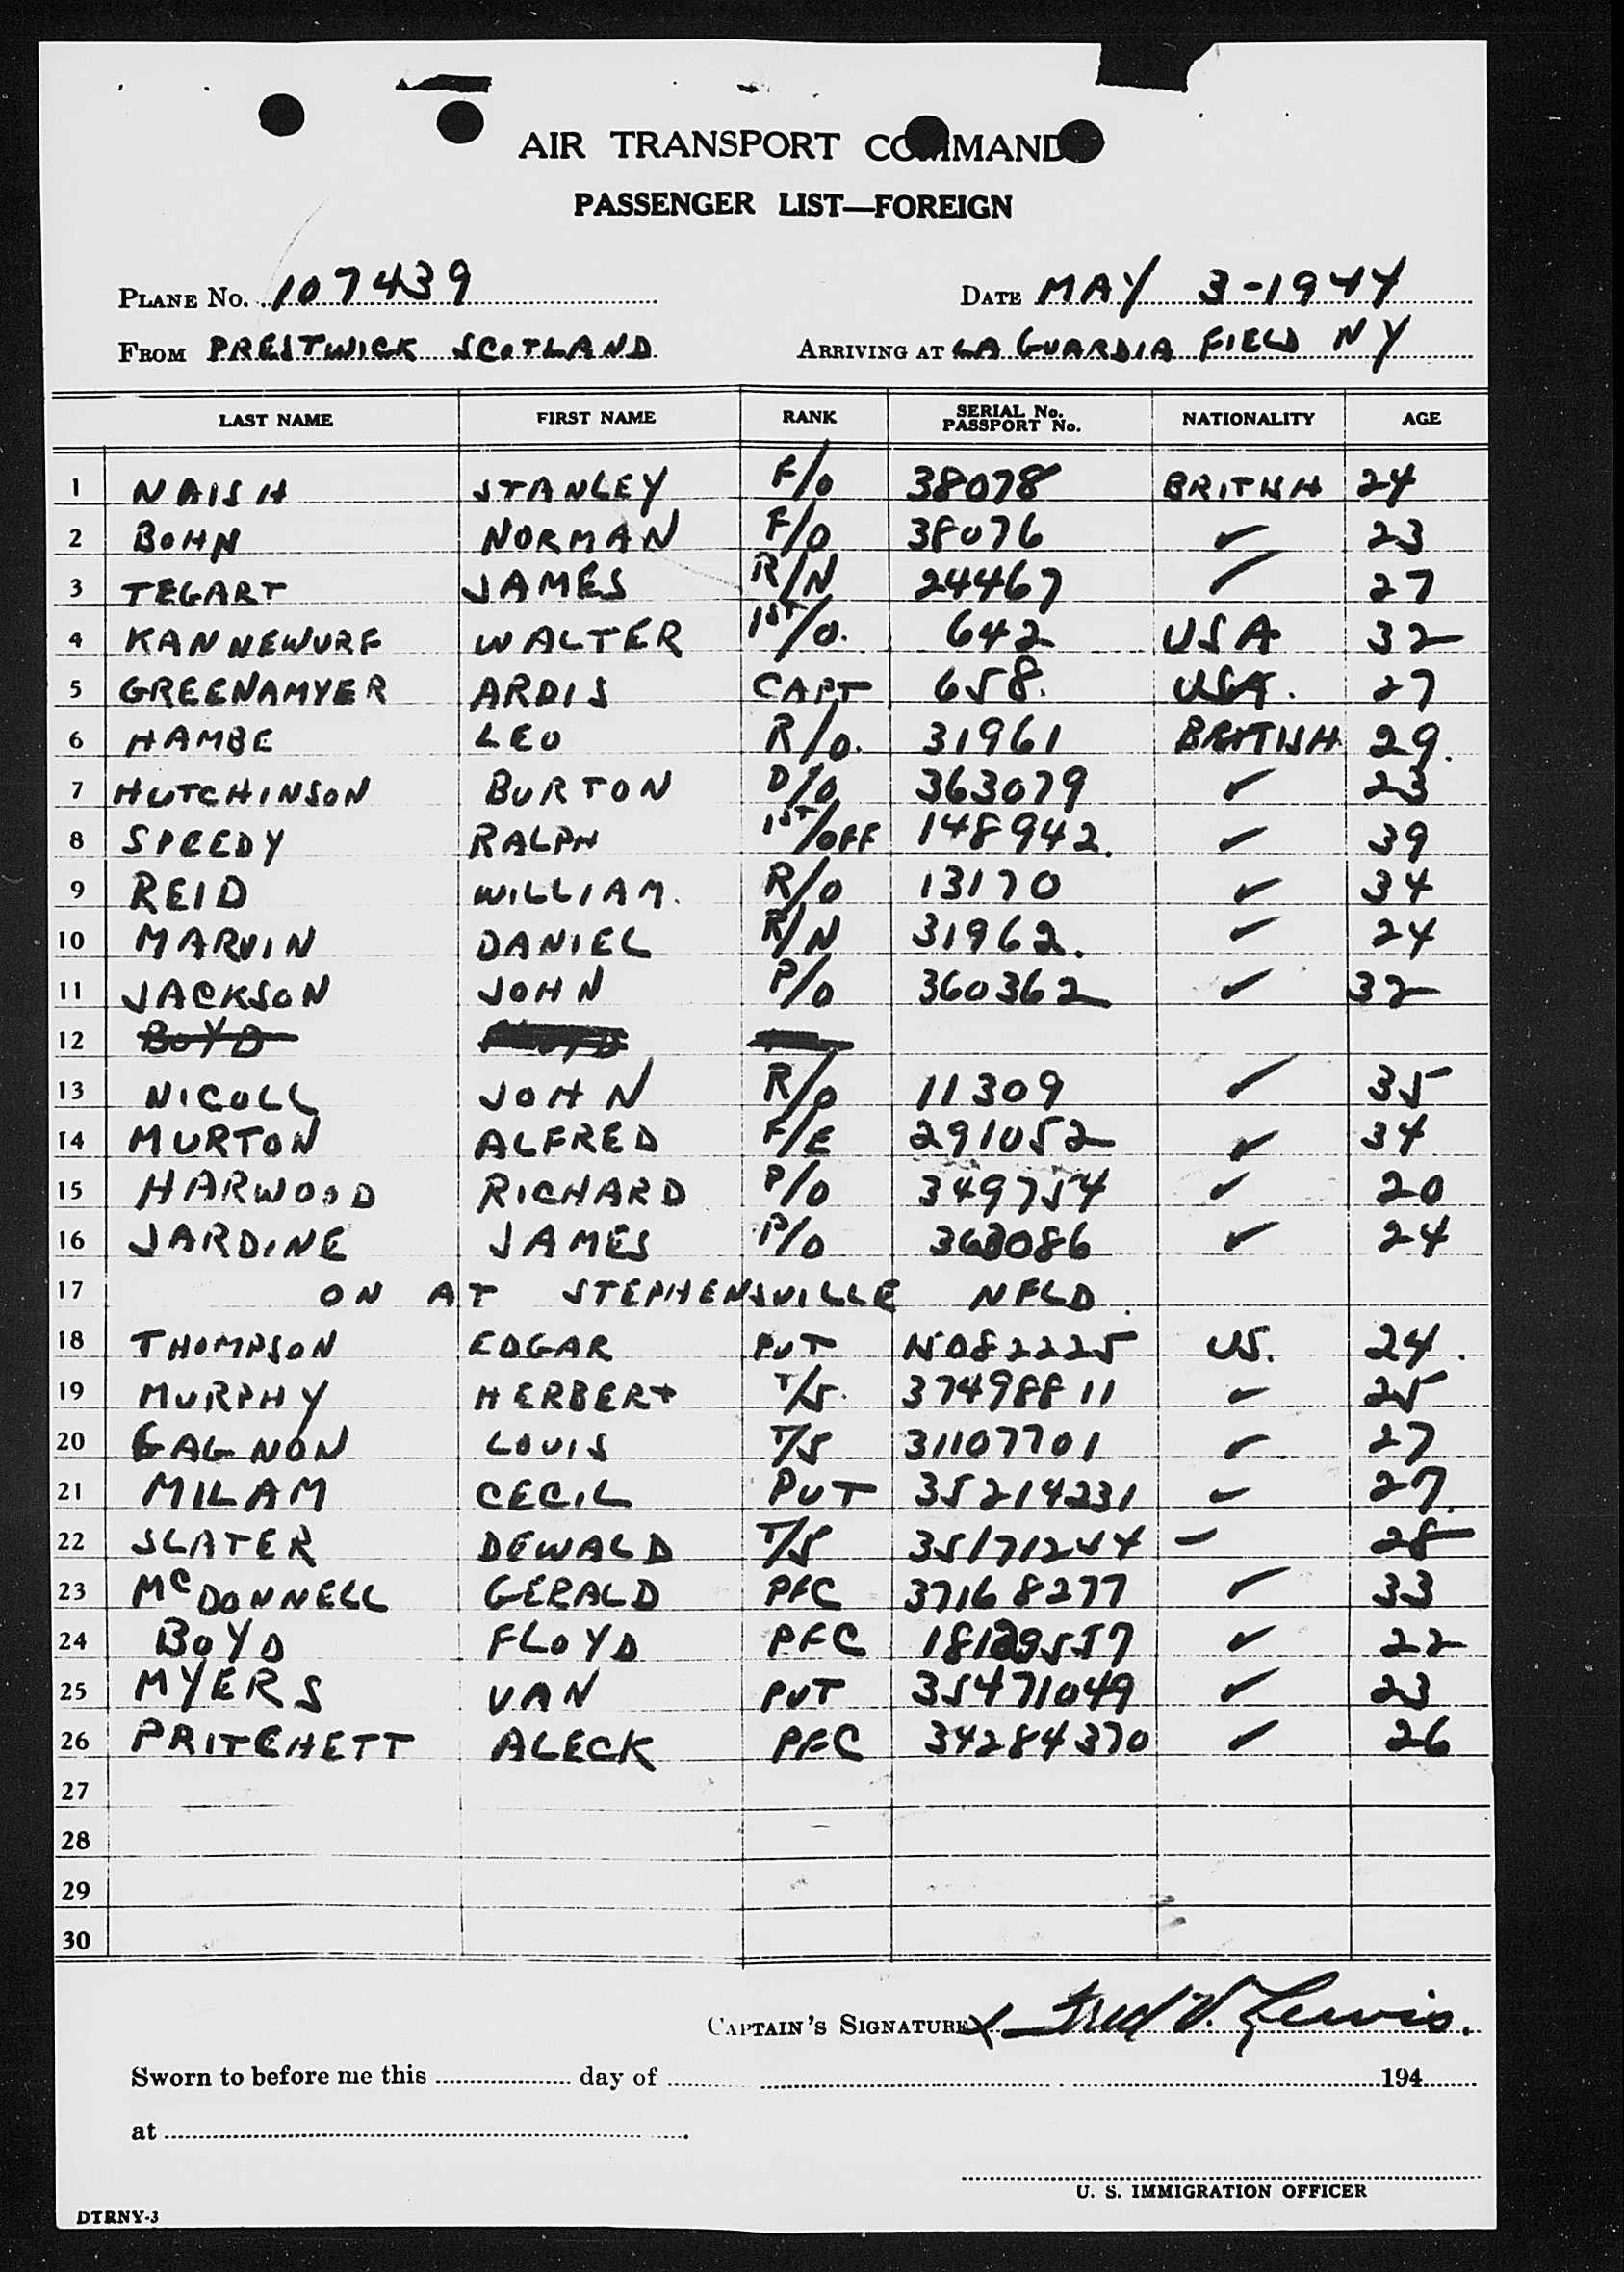 AIR TRANSPORT COMMAND
PASSENGER LIST—FOREIGN
PLANE No. 107439 DATE MAY 3-1944
FROM PRESTWICK SCOTLAND ARRIVING AT LA GUARDIA FIELD NY
LAST NAME FIRST NAME RANK SERIAL No. PASSPORT No. NATIONALITY AGE
1 NAISH STANLEY F/O 38078 BRITISH 24
2 BOHN NORMAN F/O 38076 ✓ 23
3 TEGART JAMES R/N 24467 ✓ 27
4 KANNEWURF WALTER 1ST/O. 642 USA 32
5 GREENAMYER ARDIS CAPT 658. USA. 27
6 HAMBE LEO R/O. 31961 BRITISH 29.
7 HUTCHINSON BURTON P/O 363079 ✓ 23
8 SPEEDY RALPH 1ST/OFF 148942. ✓ 39
9 REID WILLIAM. R/O 13170 ✓ 34
10 MARVIN DANIEL R/N 31962. ✓ 24
11 JACKSON JOHN P/O 360362 ✓ 32
12 BOYD
13 NICOLL JOHN R/O 11309 ✓ 35
14 MURTON ALFRED F/E 291052 ✓ 34
15 HARWOOD RICHARD P/O 349754 ✓ 20
16 JARDINE JAMES P/O 363086 ✓ 24
17 ON AT STEPHENSVILLE NFLD.
18 THOMPSON EDGAR PVT 15082225 US. 24.
19 MURPHY HERBERT T/5. 37498811 ✓ 25
20 GAGNON LOUIS T/5 31107701 ✓ 27
21 MILAM CECIL PVT 35214231 ✓ 27.
22 SLATER DEWALD T/5 35171244 ✓ 28
23 McDONNELL GERALD PFC 37168277 ✓ 33
24 BOYD FLOYD PFC 18129557 ✓ 22
25 MYERS VAN PVT 35471049 ✓ 23
26 PRITCHETT ALECK PFC 34284370 ✓ 26
27
28
29
30
CAPTAIN'S SIGNATURE X Fred V. Lewis.
Sworn to before me this day of 194
at
U. S. IMMIGRATION OFFICER
DTRNY-3